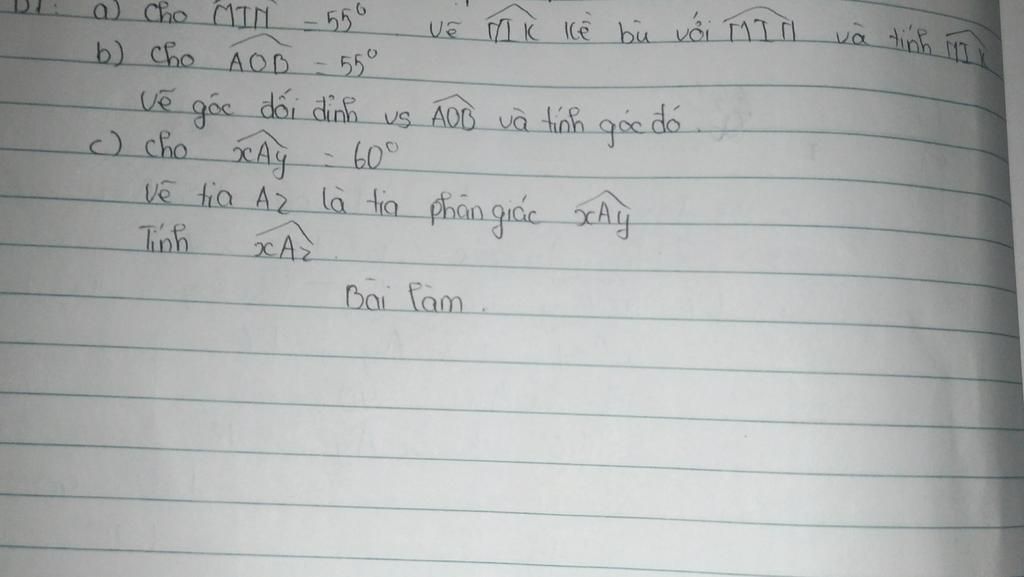 B1: a) Cho MIN = 55° Vẽ MIK kề bù với MIN và tính MIK
b) Cho AOB = 55°
Vẽ góc đối đỉnh vs AOB và tính góc đó.
c) Cho xAy = 60°
Vẽ tia Az là tia phân giác xAy
Tính xAz.
Bài làm.